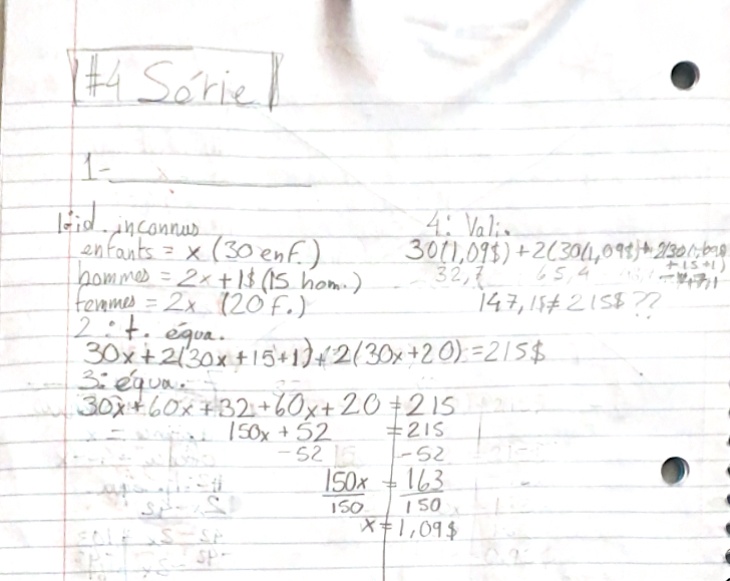 #4 Série
1-
1: id. inconnus
enfants = x (30 enf.)
hommes = 2x + 1$ (15 hom.)
femmes = 2x (20 f.)
2: t. équa.
30x + 2(30x + 15 + 1) + 2(30x + 20) = 215$
3: équa.
30x + 60x + 32 + 60x + 20 = 215
150x + 52 = 215
-52 -52
150x = 163
150 150
x = 1,09$
4: Vali.
30(1,09$) + 2(30(1,09$) +
32,7 65,4
147,1$ ≠ 215$ ??